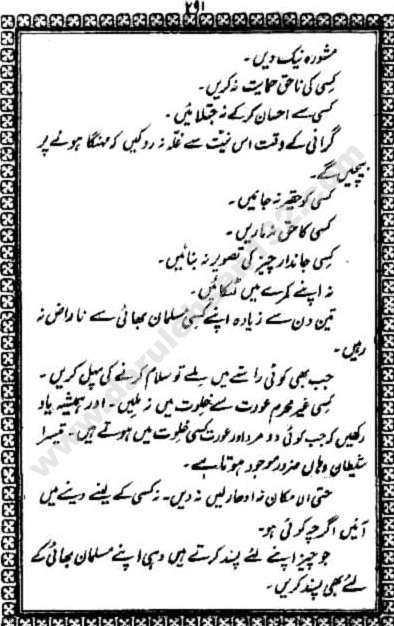 ۲۹۱
مشورہ نیک دیں۔
کسی کی ناحق حمایت نہ کریں۔
کسی سے احسان کر کے نہ جتلائیں۔
گرانی کے وقت اس نیت سے غلّہ نہ روکیں کہ مہنگا ہونے پر
بیچیں گے۔
کسی کو حقیر نہ جانیں۔
کسی کا حق نہ ماریں۔
کسی جاندار چیز کی تصویر نہ بنائیں۔
نہ اپنے کمرے میں لٹکائیں۔
تین دن سے زیادہ اپنے کسی مسلمان بھائی سے ناراض نہ
رہیں۔
جب بھی کوئی راستے میں ملے تو سلام کرنے کی پہل کریں۔
کسی غیر محرم عورت سے خلوت میں نہ ملیں۔ اور ہمیشہ یاد
رکھیں کہ جب کوئی دو مرد اور عورت کسی خلوت میں ہوتے ہیں۔ تیسرا
شیطان وہاں ضرور موجود ہوتا ہے۔
حتی الامکان نہ ادھار لیں نہ دیں۔ نہ کسی کے لینے دینے میں
آئیں اگرچہ کوئی ہو۔
جو چیز اپنے لئے پسند کرتے ہیں وہی اپنے مسلمان بھائی کے
لئے بھی پسند کریں۔